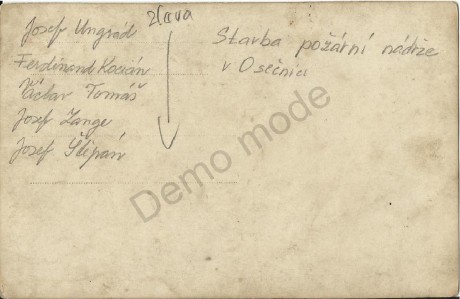 Josef Ungrád
Ferdinand Kocián
Václav Tomáš
Josef Lange
Josef Štěpán
zleva
Stavba požární nádrže
v Osečnici
Demo mode